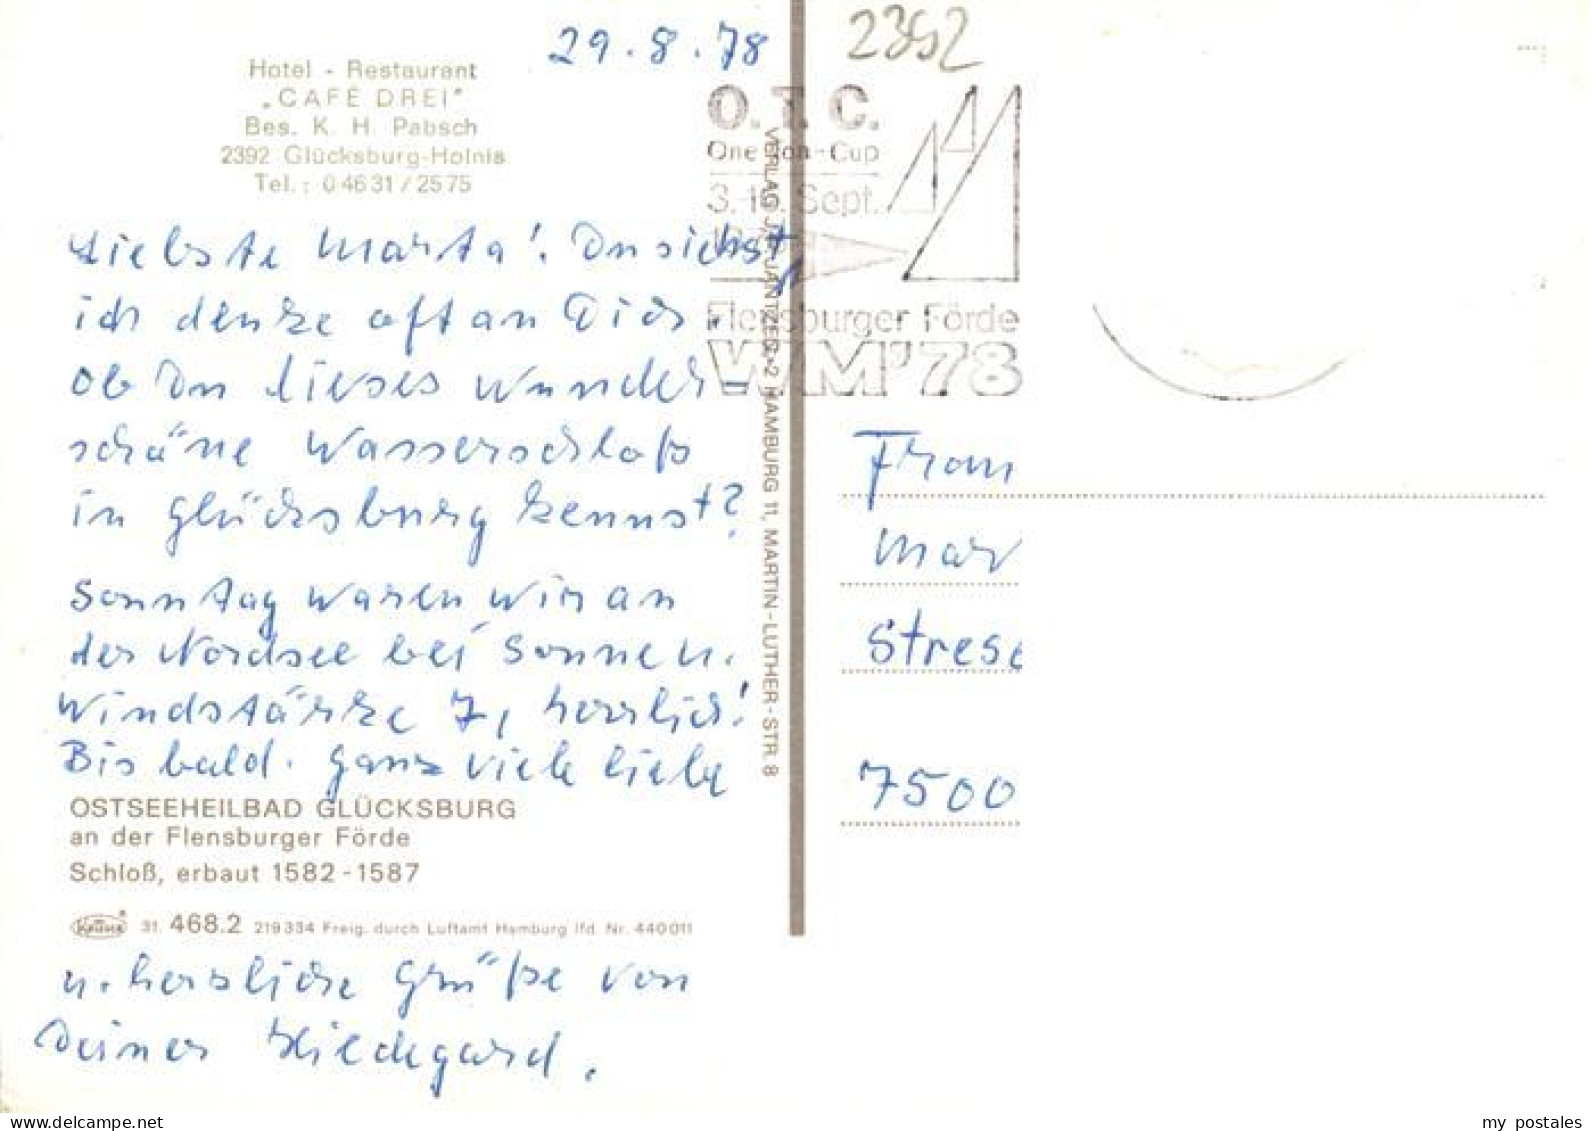 29.8.78
2392
Hotel - Restaurant
"CAFÉ DREI"
Bes. K. H. Pabsch
2392 Glücksburg-Holnis
Tel.: 04631/2575
O.T.C.
One Ton-Cup
Sept.
Flensburger Förde
WM'78
Liebste Marta! Du siehst,
ich denke oft an Dich.
Ob Du dieses wunder-
schöne Wasserschloß
in Glücksburg kennst?
Sonntag waren wir an
der Nordsee bei Sonne u.
Windstärke 7, herrlich!
Bis bald. Ganz viele liebe
OSTSEEHEILBAD GLÜCKSBURG
an der Flensburger Förde
Schloß, erbaut 1582-1587
KRÜGER 31. 468.2 219334 Freig. durch Luftamt Hamburg lfd. Nr. 440011
u. herzliche Grüße von
Deiner Hildegard.
VERLAG JAN JANTZEN · 2 HAMBURG 11, MARTIN-LUTHER-STR. 8
Frau
Mar
Strese
7500
my postales